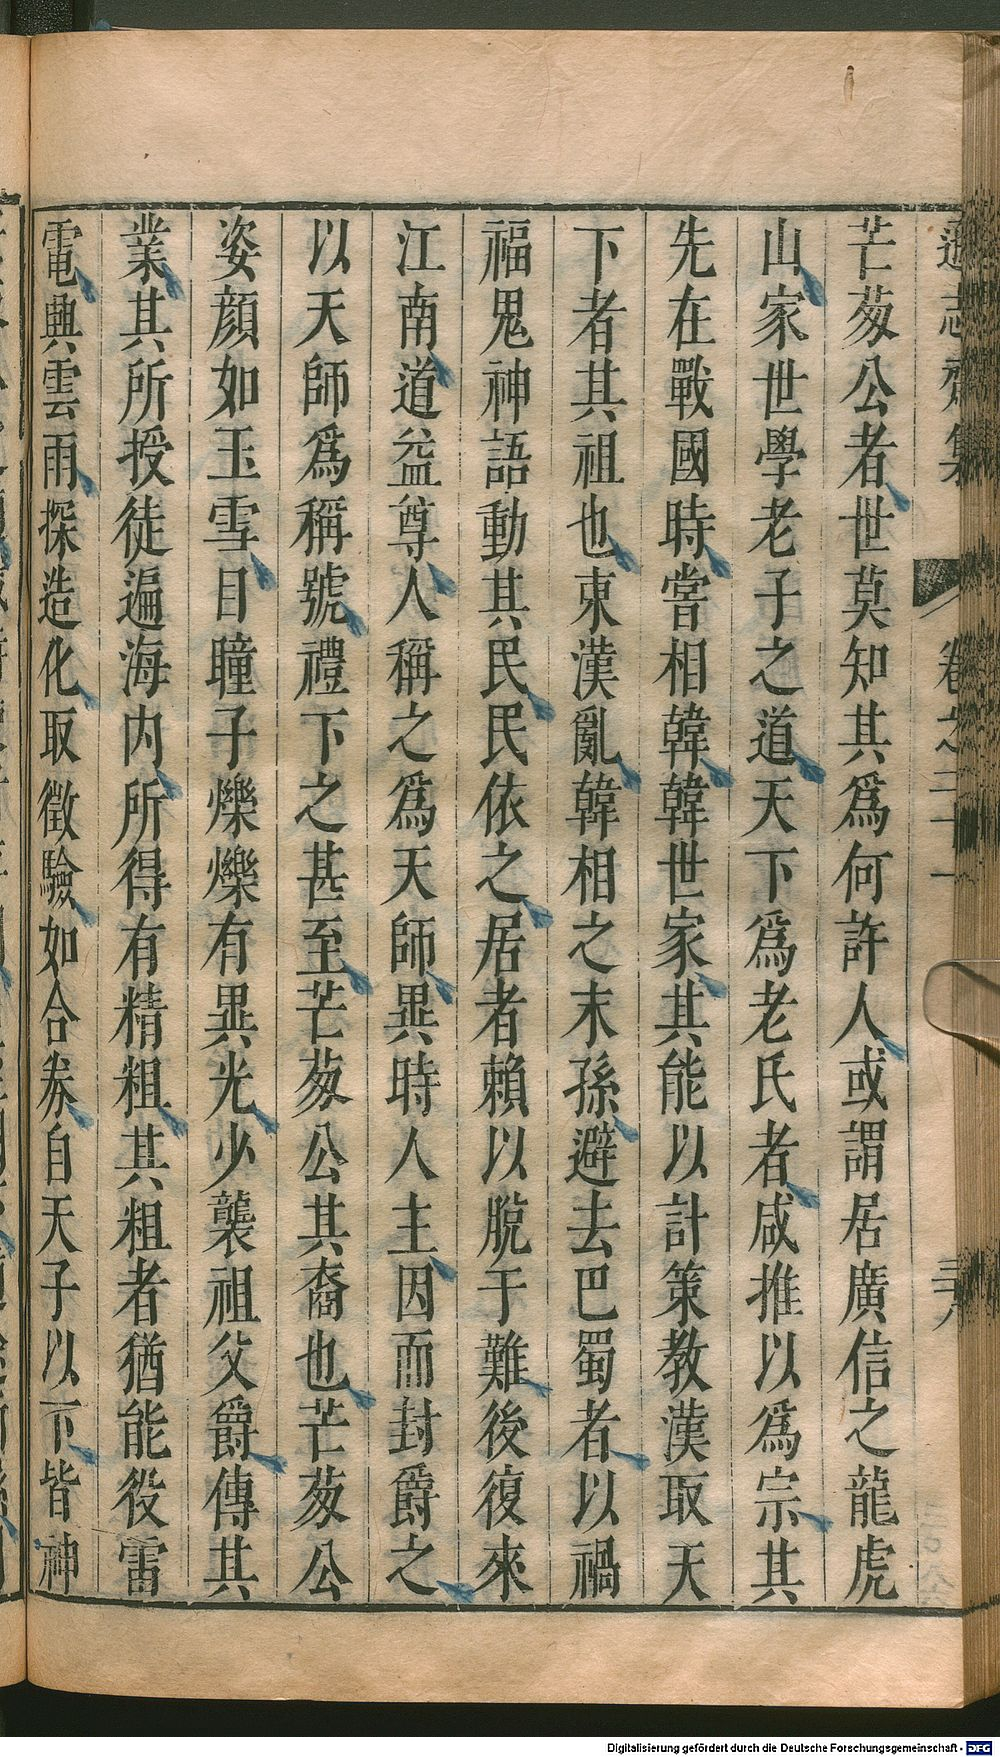 芒芴公者世莫知其爲何許人或謂居廣信之龍虎
山家世學老子之道天下爲老氏者咸推以爲宗其
先在戰國時嘗相韓韓世家其能以計策教漢取天
下者其祖也東漢亂韓相之末孫避去巴蜀者以禍
福鬼神語動其民民依之居者賴以脫于難後復來
江南道益尊人稱之爲天師異時人主因而封爵之
以天師爲稱號禮下之甚至芒芴公其裔也芒芴公
姿顔如玉雪目瞳子爍爍有異光少襲祖父爵傳其
業其所授徒遍海内所得有精粗其粗者猶能役雷
電興雲雨探造化取徵驗如合券自天子以下皆神
卷之二十一
Digitalisierung gefördert durch die Deutsche Forschungsgemeinschaft - DFG